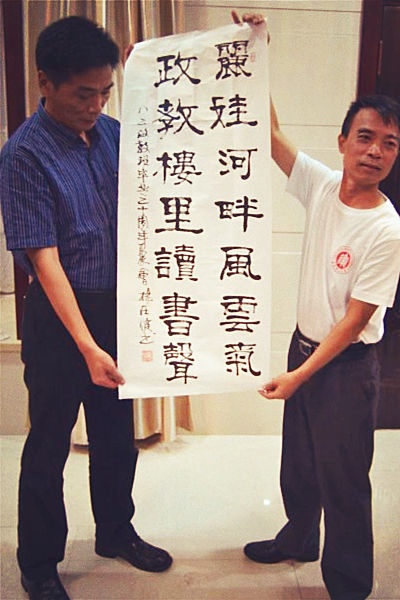 麗娃河畔風雲氣
政教樓里讀書聲
八三级政教班毕业二十周年聚會